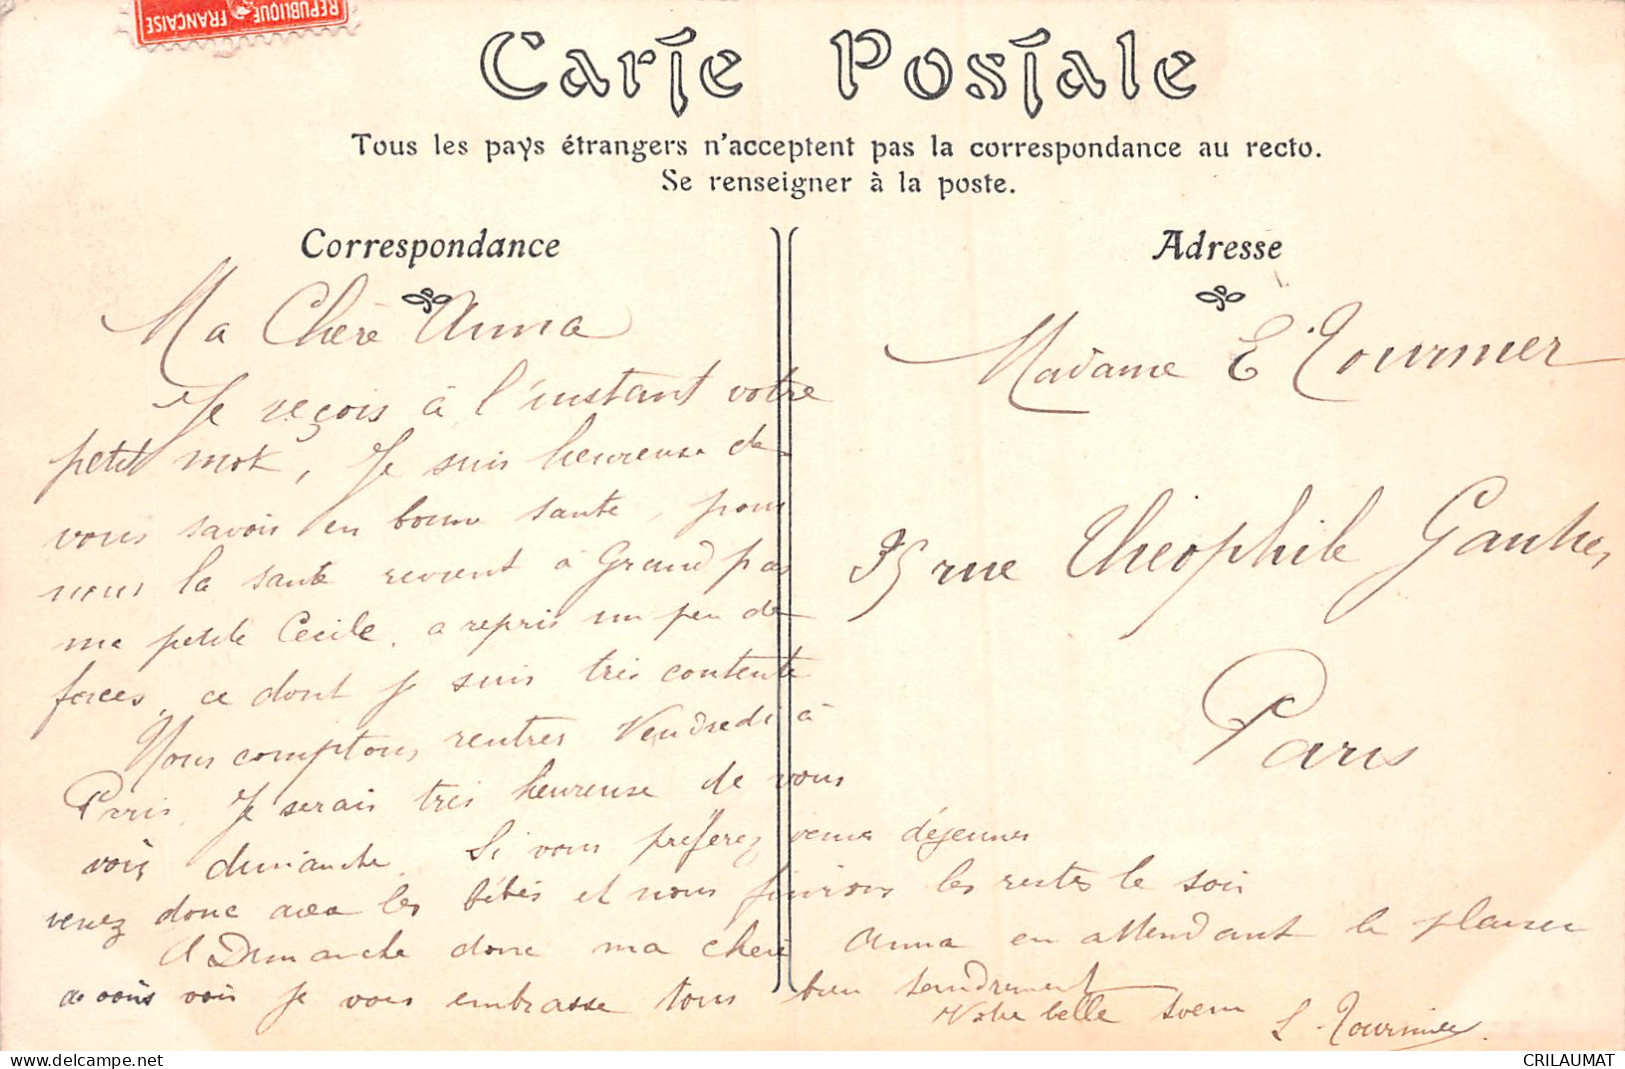 REPUBLIQUE FRANÇAISE
Carte Postale
Tous les pays étrangers n'acceptent pas la correspondance au recto.
Se renseigner à la poste.
Correspondance
Ma Chère Anna
Je reçois à l'instant votre
petit mot, Je suis heureuse de
vous savoir en bonne santé, pour
nous la santé revient à Grand pas
ma petite Cecile. a repris un peu de
forces, ce dont je suis très contente
Nous comptons rentrer Vendredi à
Paris. Je serais très heureuse de vous
voir dimanche. Si vous préferez venir déjeuner
venez donc avec les bébés et nous finirons les restes le soir
A Dimanche donc ma chère Anna en attendant le plaisir
de vous voir je vous embrasse tous bien tendrement
Votre belle soeur L. Tournier
Adresse
Madame E Tournier
35 rue Théophile Gautier
Paris
CRILAUMAT